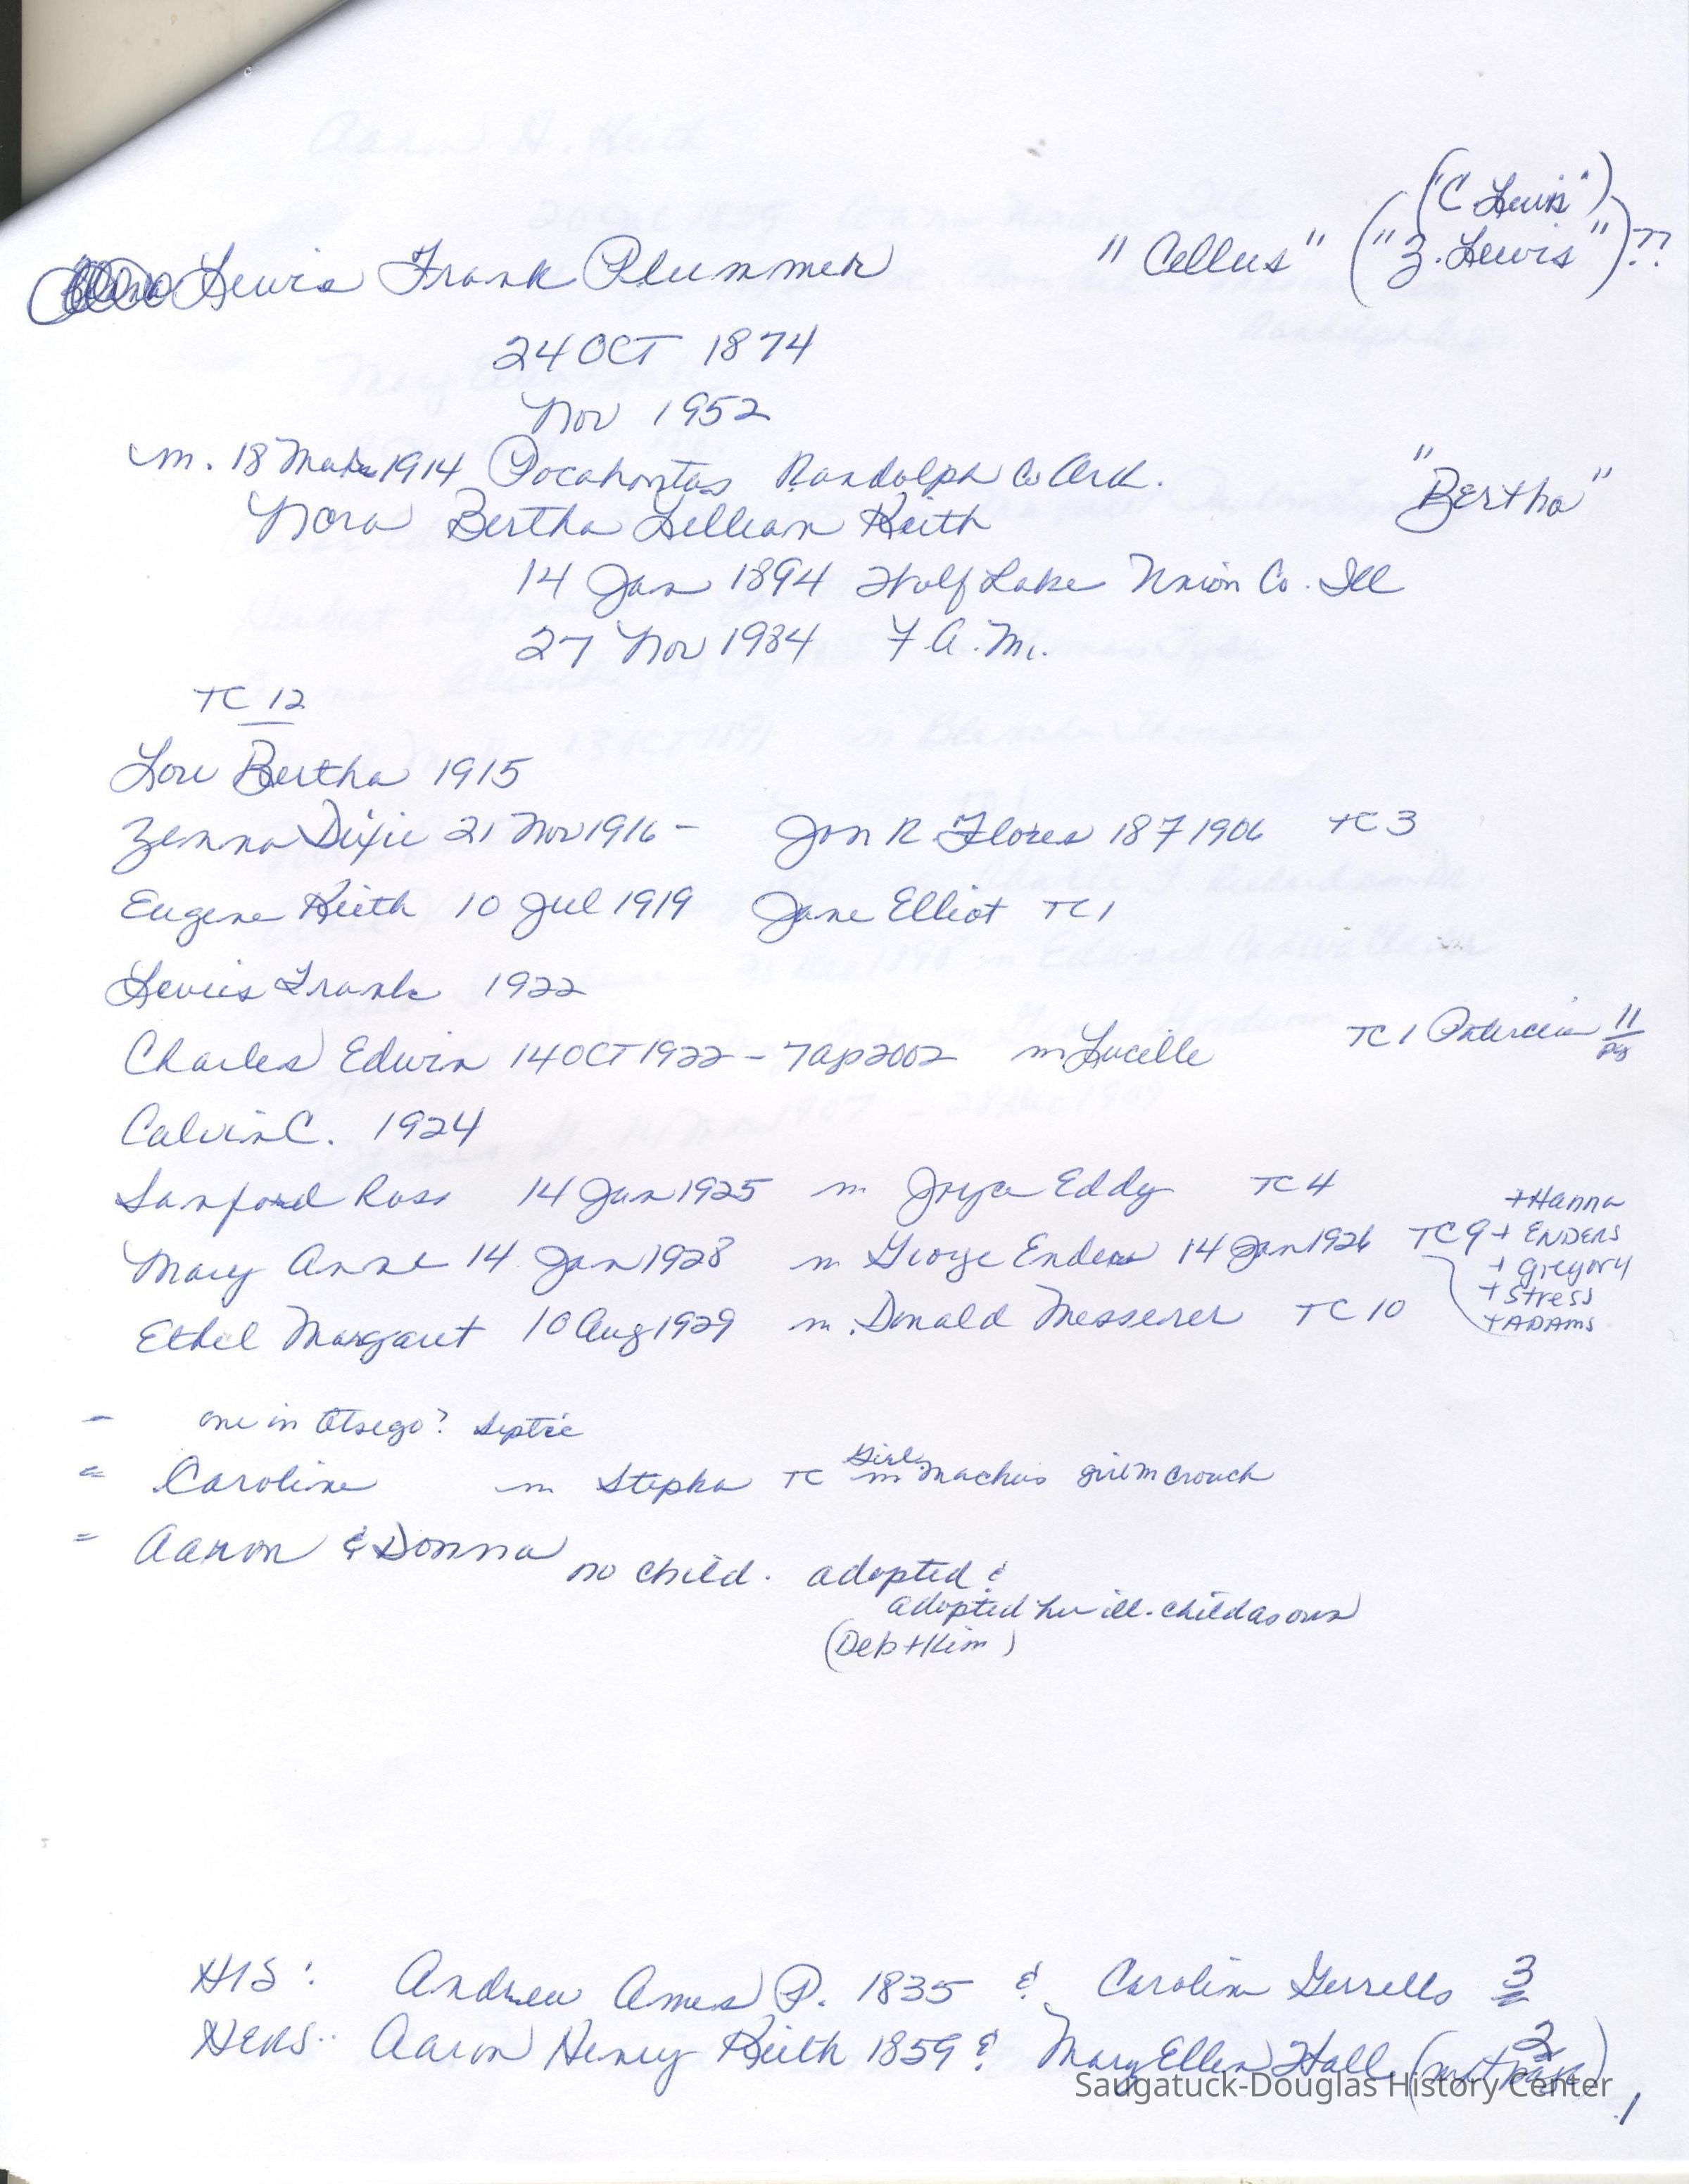 ("C Lewis")
Lewis Frank Plummer "Cellus" ("Z. Lewis")??
24 OCT 1874
Nov 1952
m. 18 Mar 1914 Pocahontas Randolph Co Ark.
Nora Bertha Lillian Keith "Bertha"
14 Jan 1894 Wolf Lake Union Co. Ill
27 Nov 1984 F.A.M.
TC 12
Lou Bertha 1915
Zenna Dixie 21 Nov 1916 - Jon R. Flores 187 1906 TC 3
Eugene Keith 10 Jul 1919 Jane Elliot TC 1
Lewis Frank 1922
Charles Edwin 14 OCT 1922 - 7 ap 2002 m Lucille TC 1 Patercia 11 pg
Calvin C. 1924
Sanford Ross 14 Jan 1925 m Joyce Eddy TC 4
Mary Anne 14 Jan 1928 m George Enders 14 Jan 1926 TC 9 + Hanna
+ ENDERS
+ Gregory
+ Stress
+ ADAMS
Ethel Margaret 10 Aug 1929 m. Donald Messerer TC 10
- one in Otsego? Septic
= Caroline m Stepka TC Girl m Machus girl m Crouch
= Aaron & Donna no child. adopted &
adopted her ill. child as own
(Deb + Kim)
HIS: Andrew Ames P. 1835 & Carolin Gerrells 3
HERS: Aaron Henry Keith 1859 & Mary Ellen Hall (nxt page) 2
1
Saugatuck-Douglas History Center